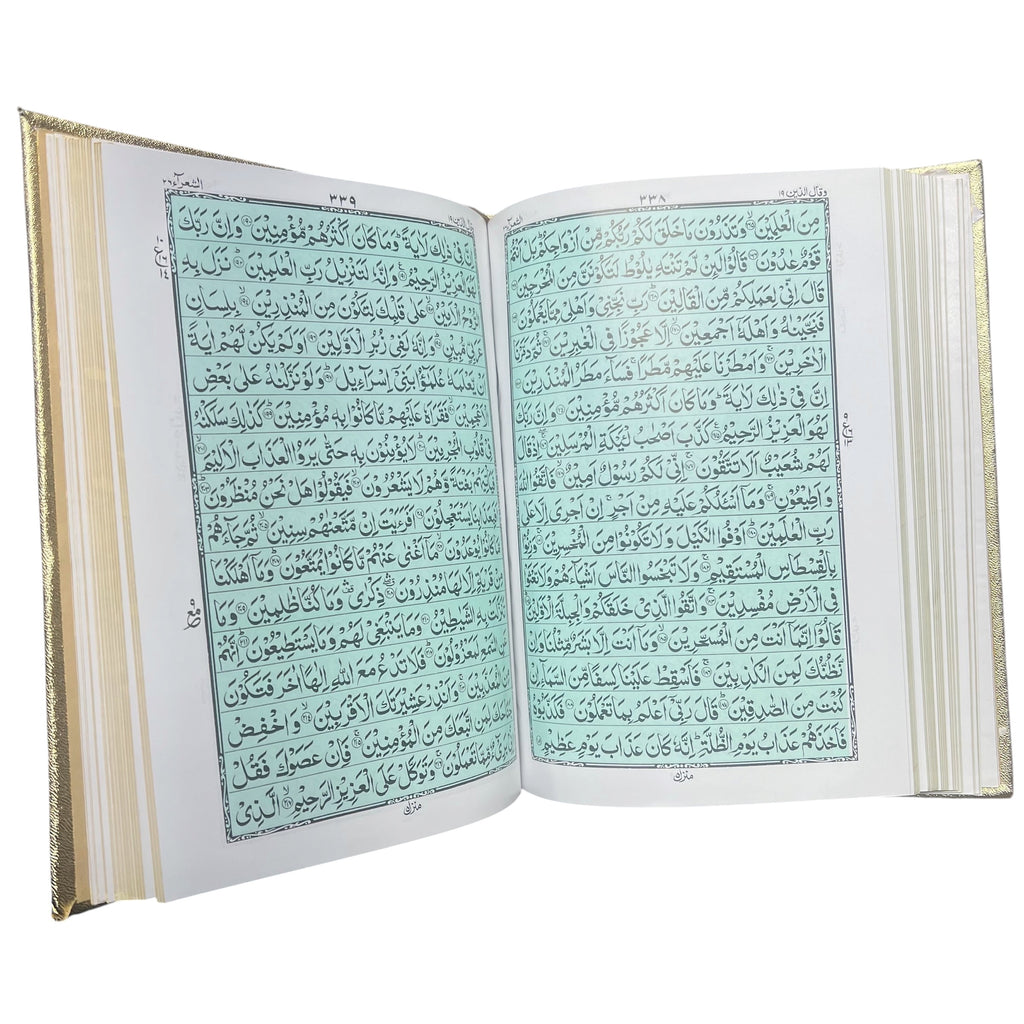 وَقَالَ الَّذِیْنَ ۱۹
۳۳۸
مِنَ الْعٰلَمِیْنَ ۙ۝۱۶۵ وَتَذَرُوْنَ مَا خَلَقَ لَكُمْ رَبُّكُمْ مِّنْ اَزْوَاجِكُمْ بَلْ
قَوْمٌ عٰدُوْنَ ۝۱۶۶ قَالُوْا لَىِٕنْ لَّمْ تَنْتَهِ یٰلُوْطُ لَتَكُوْنَنَّ مِنَ الْمُخْرَجِیْنَ
قَالَ اِنِّیْ لِعَمَلِكُمْ مِّنَ الْقَالِیْنَ ۝۱۶۸ رَبِّ نَجِّنِیْ وَاَهْلِیْ مِمَّا یَعْمَلُوْنَ
فَنَجَّیْنٰهُ وَاَهْلَهٗۤ اَجْمَعِیْنَ ۙ۝۱۷۰ اِلَّا عَجُوْزًا فِی الْغٰبِرِیْنَ ۝۱۷۱ ثُمَّ دَمَّرْنَا
الْاٰخَرِیْنَ ۝۱۷۲ وَاَمْطَرْنَا عَلَیْهِمْ مَّطَرًا فَسَآءَ مَطَرُ الْمُنْذَرِیْنَ
اِنَّ فِیْ ذٰلِكَ لَاٰیَةً وَمَا كَانَ اَكْثَرُهُمْ مُّؤْمِنِیْنَ ۝۱۷۴ وَاِنَّ رَبَّكَ
لَهُوَ الْعَزِیْزُ الرَّحِیْمُ ۝۱۷۵ كَذَّبَ اَصْحٰبُ لْـَٔیْكَةِ الْمُرْسَلِیْنَ ۝۱۷۶ اِذْ قَالَ
لَهُمْ شُعَیْبٌ اَلَا تَتَّقُوْنَ ۝۱۷۷ اِنِّیْ لَكُمْ رَسُوْلٌ اَمِیْنٌ ۝۱۷۸ فَاتَّقُوا اللّٰهَ
وَاَطِیْعُوْنِ ۝۱۷۹ وَمَاۤ اَسْـَٔلُكُمْ عَلَیْهِ مِنْ اَجْرٍ اِنْ اَجْرِیَ اِلَّا عَلٰی
رَبِّ الْعٰلَمِیْنَ ۝۱۸۰ اَوْفُوا الْكَیْلَ وَلَا تَكُوْنُوْا مِنَ الْمُخْسِرِیْنَ ۝۱۸۱ وَزِنُوْا
بِالْقِسْطَاسِ الْمُسْتَقِیْمِ ۝۱۸۲ وَلَا تَبْخَسُوا النَّاسَ اَشْیَآءَهُمْ وَلَا تَعْثَوْا
فِی الْاَرْضِ مُفْسِدِیْنَ ۝۱۸۳ وَاتَّقُوا الَّذِیْ خَلَقَكُمْ وَالْجِبِلَّةَ الْاَوَّلِیْنَ
قَالُوْۤا اِنَّمَاۤ اَنْتَ مِنَ الْمُسَحَّرِیْنَ ۝۱۸۵ وَمَاۤ اَنْتَ اِلَّا بَشَرٌ مِّثْلُنَا وَاِنْ
نَّظُنُّكَ لَمِنَ الْكٰذِبِیْنَ ۝۱۸۶ فَاَسْقِطْ عَلَیْنَا كِسَفًا مِّنَ السَّمَآءِ اِنْ
كُنْتَ مِنَ الصّٰدِقِیْنَ ۝۱۸۷ قَالَ رَبِّیْۤ اَعْلَمُ بِمَا تَعْمَلُوْنَ ۝۱۸۸ فَكَذَّبُوْهُ
فَاَخَذَهُمْ عَذَابُ یَوْمِ الظُّلَّةِ اِنَّهٗ كَانَ عَذَابَ یَوْمٍ عَظِیْمٍ ۝۱۸۹
منزل ۵
۳۳۹
الشعرآء ۲۶
اِنَّ فِیْ ذٰلِكَ لَاٰیَةً وَمَا كَانَ اَكْثَرُهُمْ مُّؤْمِنِیْنَ ۝۱۹۰ وَاِنَّ رَبَّكَ
لَهُوَ الْعَزِیْزُ الرَّحِیْمُ ۝۱۹۱ وَاِنَّهٗ لَتَنْزِیْلُ رَبِّ الْعٰلَمِیْنَ ۝۱۹۲ نَزَلَ بِهِ
الرُّوْحُ الْاَمِیْنُ ۝۱۹۳ عَلٰی قَلْبِكَ لِتَكُوْنَ مِنَ الْمُنْذِرِیْنَ ۝۱۹۴ بِلِسَانٍ
عَرَبِیٍّ مُّبِیْنٍ ۝۱۹۵ وَاِنَّهٗ لَفِیْ زُبُرِ الْاَوَّلِیْنَ ۝۱۹۶ اَوَلَمْ یَكُنْ لَّهُمْ اٰیَةً
اَنْ یَّعْلَمَهٗ عُلَمٰٓؤُا بَنِیْۤ اِسْرَآءِیْلَ ۝۱۹۷ وَلَوْ نَزَّلْنٰهُ عَلٰی بَعْضِ
الْاَعْجَمِیْنَ ۝۱۹۸ فَقَرَاَهٗ عَلَیْهِمْ مَّا كَانُوْا بِهٖ مُؤْمِنِیْنَ ۝۱۹۹ كَذٰلِكَ سَلَكْنٰهُ
فِیْ قُلُوْبِ الْمُجْرِمِیْنَ ۝۲۰۰ لَا یُؤْمِنُوْنَ بِهٖ حَتّٰی یَرَوُا الْعَذَابَ الْاَلِیْمَ
فَیَاْتِیَهُمْ بَغْتَةً وَّهُمْ لَا یَشْعُرُوْنَ ۝۲۰۲ فَیَقُوْلُوْا هَلْ نَحْنُ مُنْظَرُوْنَ ۝۲۰۳
اَفَبِعَذَابِنَا یَسْتَعْجِلُوْنَ ۝۲۰۴ اَفَرَءَیْتَ اِنْ مَّتَّعْنٰهُمْ سِنِیْنَ ۝۲۰۵ ثُمَّ جَآءَهُمْ
مَّا كَانُوْا یُوْعَدُوْنَ ۝۲۰۶ مَاۤ اَغْنٰی عَنْهُمْ مَّا كَانُوْا یُمَتَّعُوْنَ ۝۲۰۷ وَمَاۤ اَهْلَكْنَا
مِنْ قَرْیَةٍ اِلَّا لَهَا مُنْذِرُوْنَ ۝۲۰۸ ذِكْرٰی وَمَا كُنَّا ظٰلِمِیْنَ ۝۲۰۹ وَمَا
تَنَزَّلَتْ بِهِ الشَّیٰطِیْنُ ۝۲۱۰ وَمَا یَنْۢبَغِیْ لَهُمْ وَمَا یَسْتَطِیْعُوْنَ ۝۲۱۱ اِنَّهُمْ
عَنِ السَّمْعِ لَمَعْزُوْلُوْنَ ۝۲۱۲ فَلَا تَدْعُ مَعَ اللّٰهِ اِلٰهًا اٰخَرَ فَتَكُوْنَ
مِنَ الْمُعَذَّبِیْنَ ۝۲۱۳ وَاَنْذِرْ عَشِیْرَتَكَ الْاَقْرَبِیْنَ ۝۲۱۴ وَاخْفِضْ
جَنَاحَكَ لِمَنِ اتَّبَعَكَ مِنَ الْمُؤْمِنِیْنَ ۝۲۱۵ فَاِنْ عَصَوْكَ فَقُلْ
اِنِّیْ بَرِیْٓءٌ مِّمَّا تَعْمَلُوْنَ ۝۲۱۶ وَتَوَكَّلْ عَلَی الْعَزِیْزِ الرَّحِیْمِ ۝۲۱۷ الَّذِیْ
منزل ۵